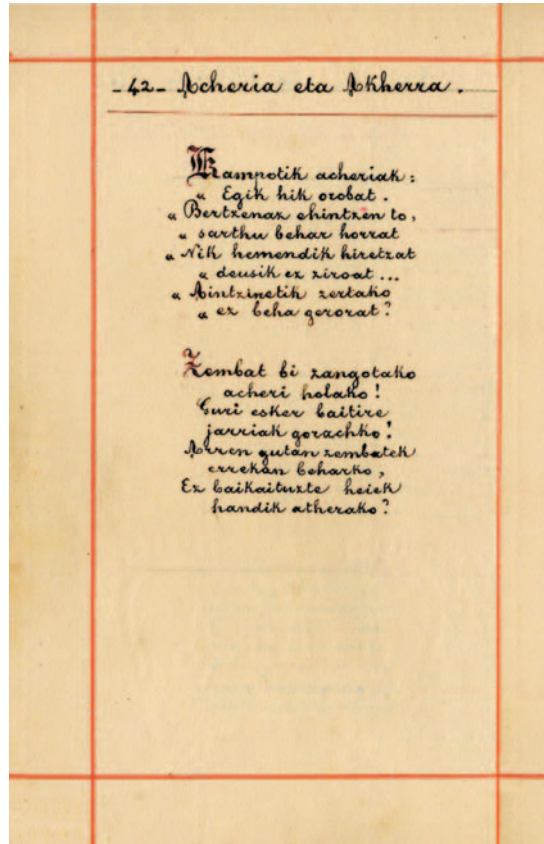 - 42 - Acheria eta Akherra.
Kampotik acheriak:
" Egik hik orobat.
" Bertzenaz ehintzen to,
" sarthu behar horrat
" Nik hemendik hiretzat
" deusik ez ziroat ...
" Aintzinetik zertako
" ez beha gerorat?
Zembat bi zangotako
acheri holako!
Guri esker baitire
jarriak gorachko!
Arren gutan zembatek
errekan beharko,
Ez baikaituzte heiek
handik atherako?